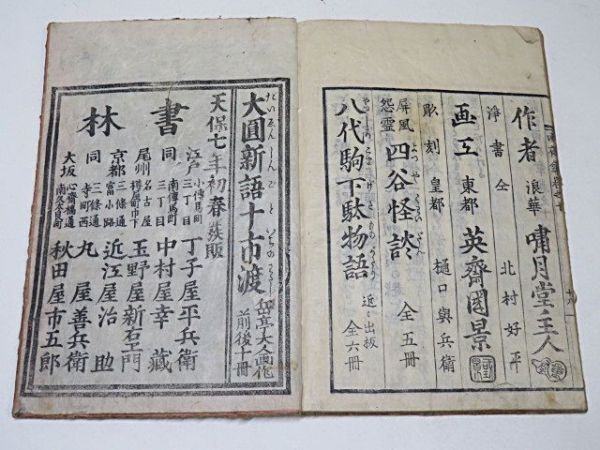 作者 浪華 嘯月堂主人
浄書 仝 北村好平
画工 東都 英齋國景
彫刻 皇都 樋口與兵衛
屏風怨霊 四谷怪談 全五冊
よつやくわいだん
八代駒下駄物語 近々出板 全六冊
大圓新語十市渡 岳亭大人画作 前後十冊
天保七年初春發販
書林
江戸 小傳馬町三丁目 丁子屋平兵衛
同 南傳馬町三丁目 中村屋幸藏
尾州 名古屋 玉野屋新右エ門
京都 三條通富小路 近江屋治助
同 三條通寺町西 丸屋善兵衛
大坂 心齋橋通南久太良町 秋田屋市五郎